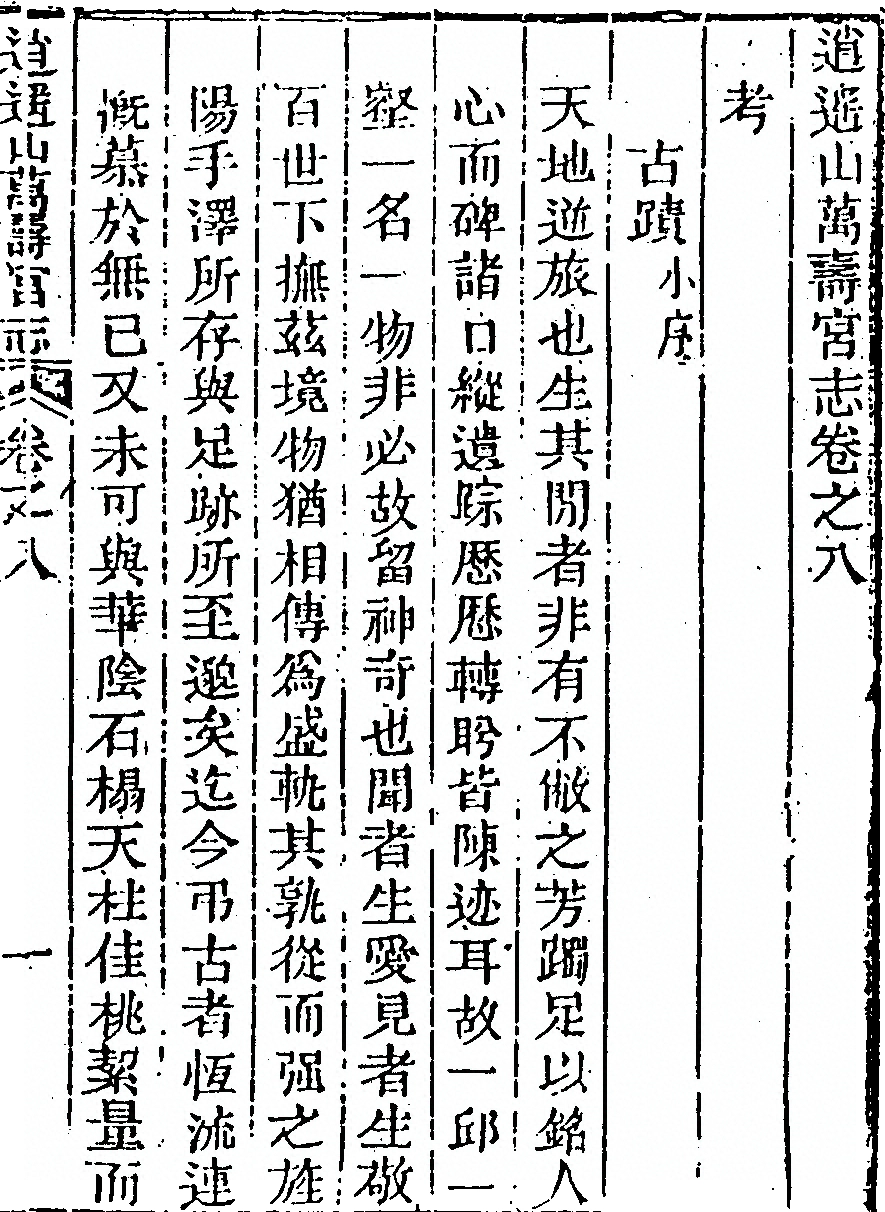 逍遙山萬壽宮志卷之八
考
古蹟小序
天地逆旅也生其間者非有不敝之芳躅足以銘人
心而碑諸口縱遺踪歷歷轉盻皆陳迹耳故一邱一
壑一名一物非必故留神奇也聞者生愛見者生敬
百世下撫茲境物猶相傳為盛軌其孰從而强之旌
陽手澤所存與足跡所至邈矣迄今弔古者恆流連
慨慕於無已又未可與華陰石榻天柱佳桃絜量而
逍遙山萬壽宮志 卷之八 一